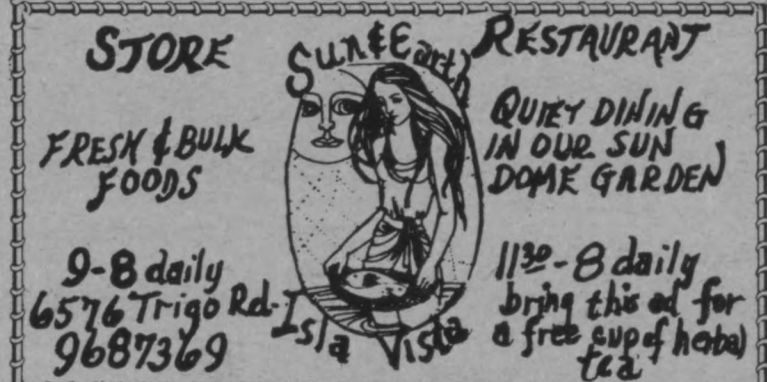 STORE
FRESH & BULK
FOODS
9-8 daily
6576 Trigo Rd-
9687369
Sun & Earth
Isla Vista
RESTAURANT
QUIET DINING
IN OUR SUN
DOME GARDEN
11 30 - 8 daily
bring this ad for
a free cup of herbal
tea